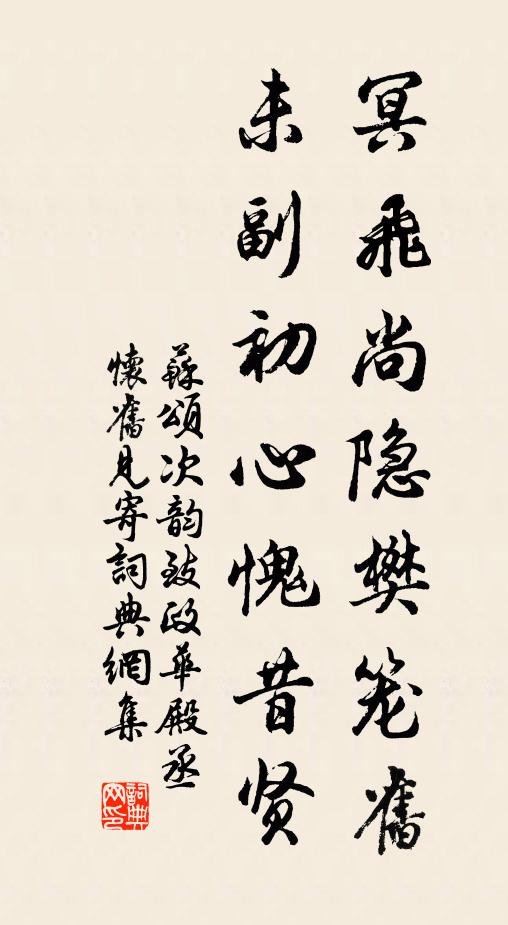 冥飛尚隐樊笼舊
未副初心愧昔贤
蘇頌次韵致政華殿丞
懷舊見寄詞典網集
詞典網印